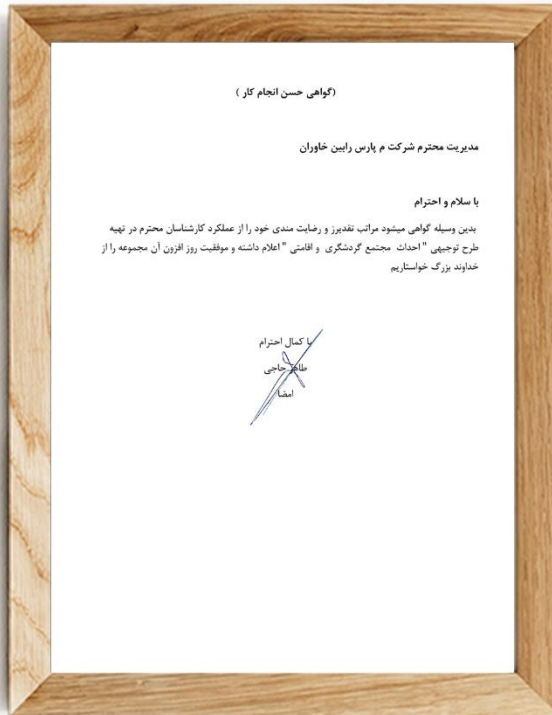 (گواهی حسن انجام کار )
مدیریت محترم شرکت م پارس رابین خاوران
با سلام و احترام
بدین وسیله گواهی میشود مراتب تقدیرز و رضایت مندی خود را از عملکرد کارشناسان محترم در تهیه
طرح توجیهی " احداث مجتمع گردشگری و اقامتی " اعلام داشته و موفقیت روز افزون آن مجموعه را از
خداوند بزرگ خواستاریم
با کمال احترام
طاهر حاجی
امضا